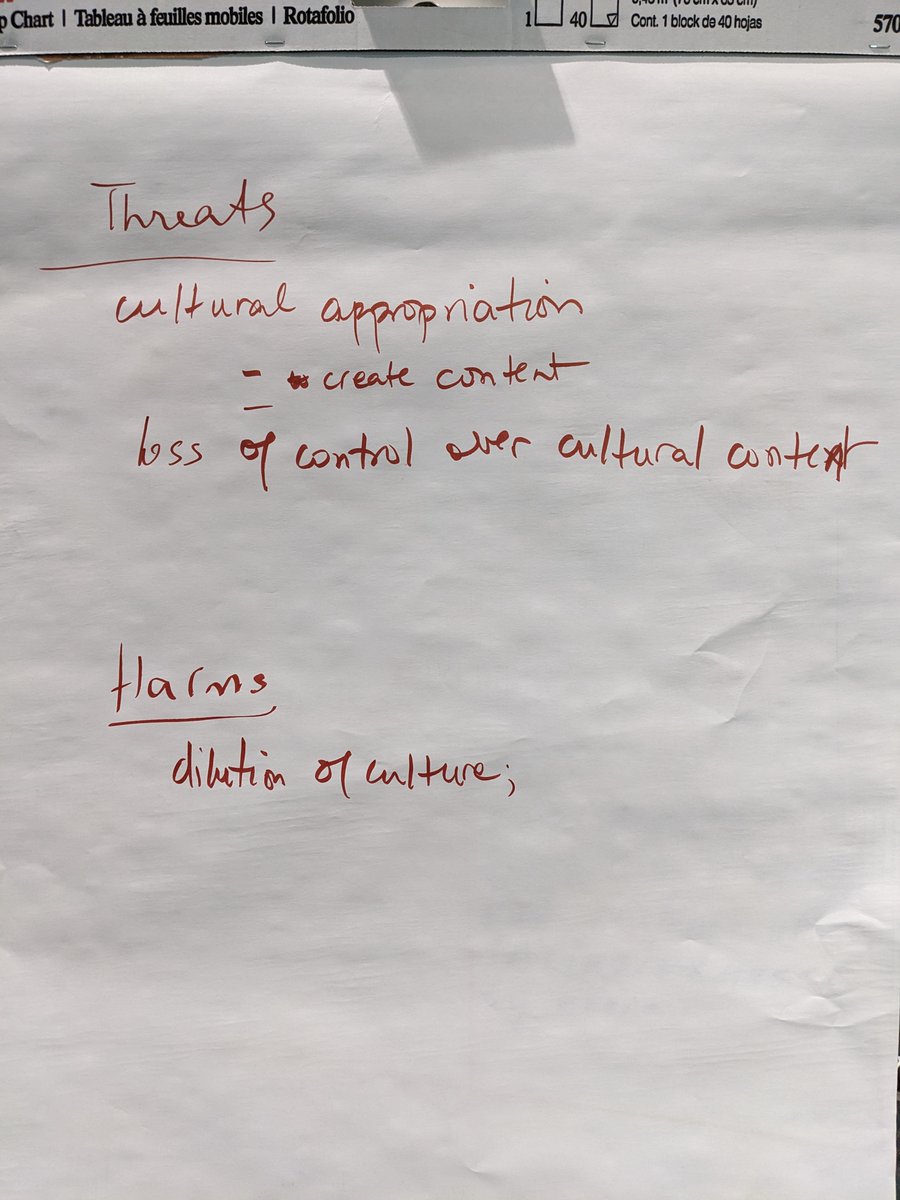 p Chart | Tableau à feuilles mobiles | Rotafolio
1 40
Cont. 1 block de 40 hojas
570
Threats
cultural appropriation
- create content
-
loss of control over cultural content
Harms
dilution of culture;